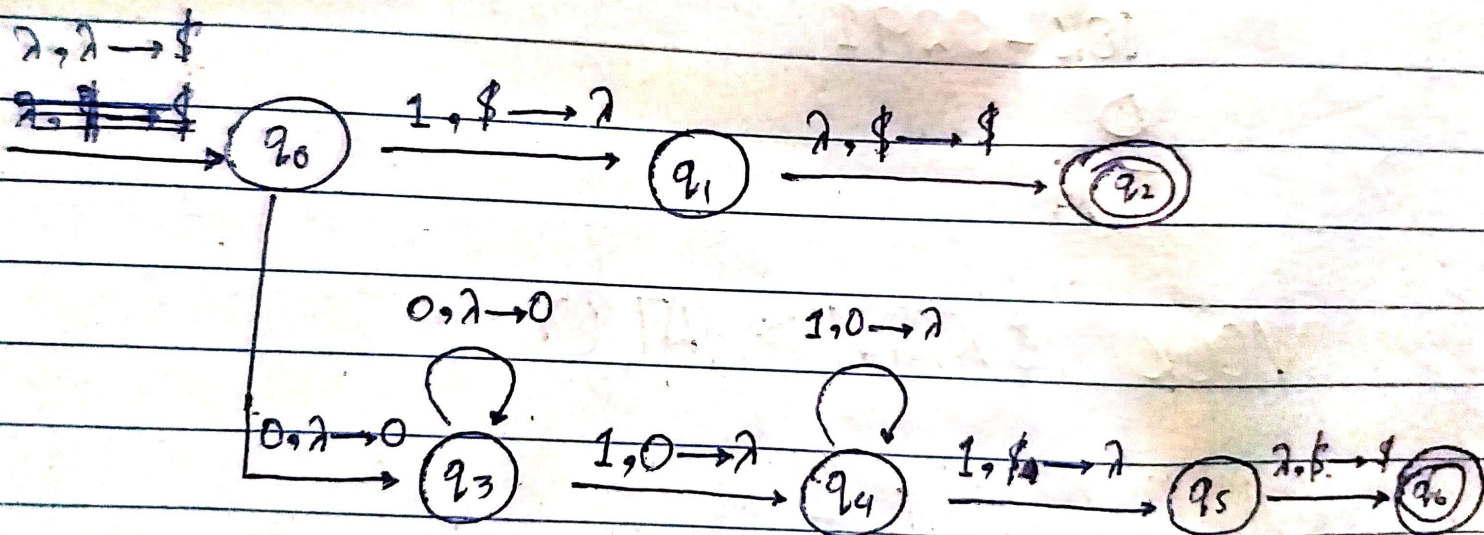 λ, λ → $
λ, $ → $
q0
1, $ → λ
q1
λ, $ → $
q2
0, λ → 0
1, 0 → λ
0, λ → 0
q3
1, 0 → λ
q4
1, $ → λ
q5
λ, $ → $
q6